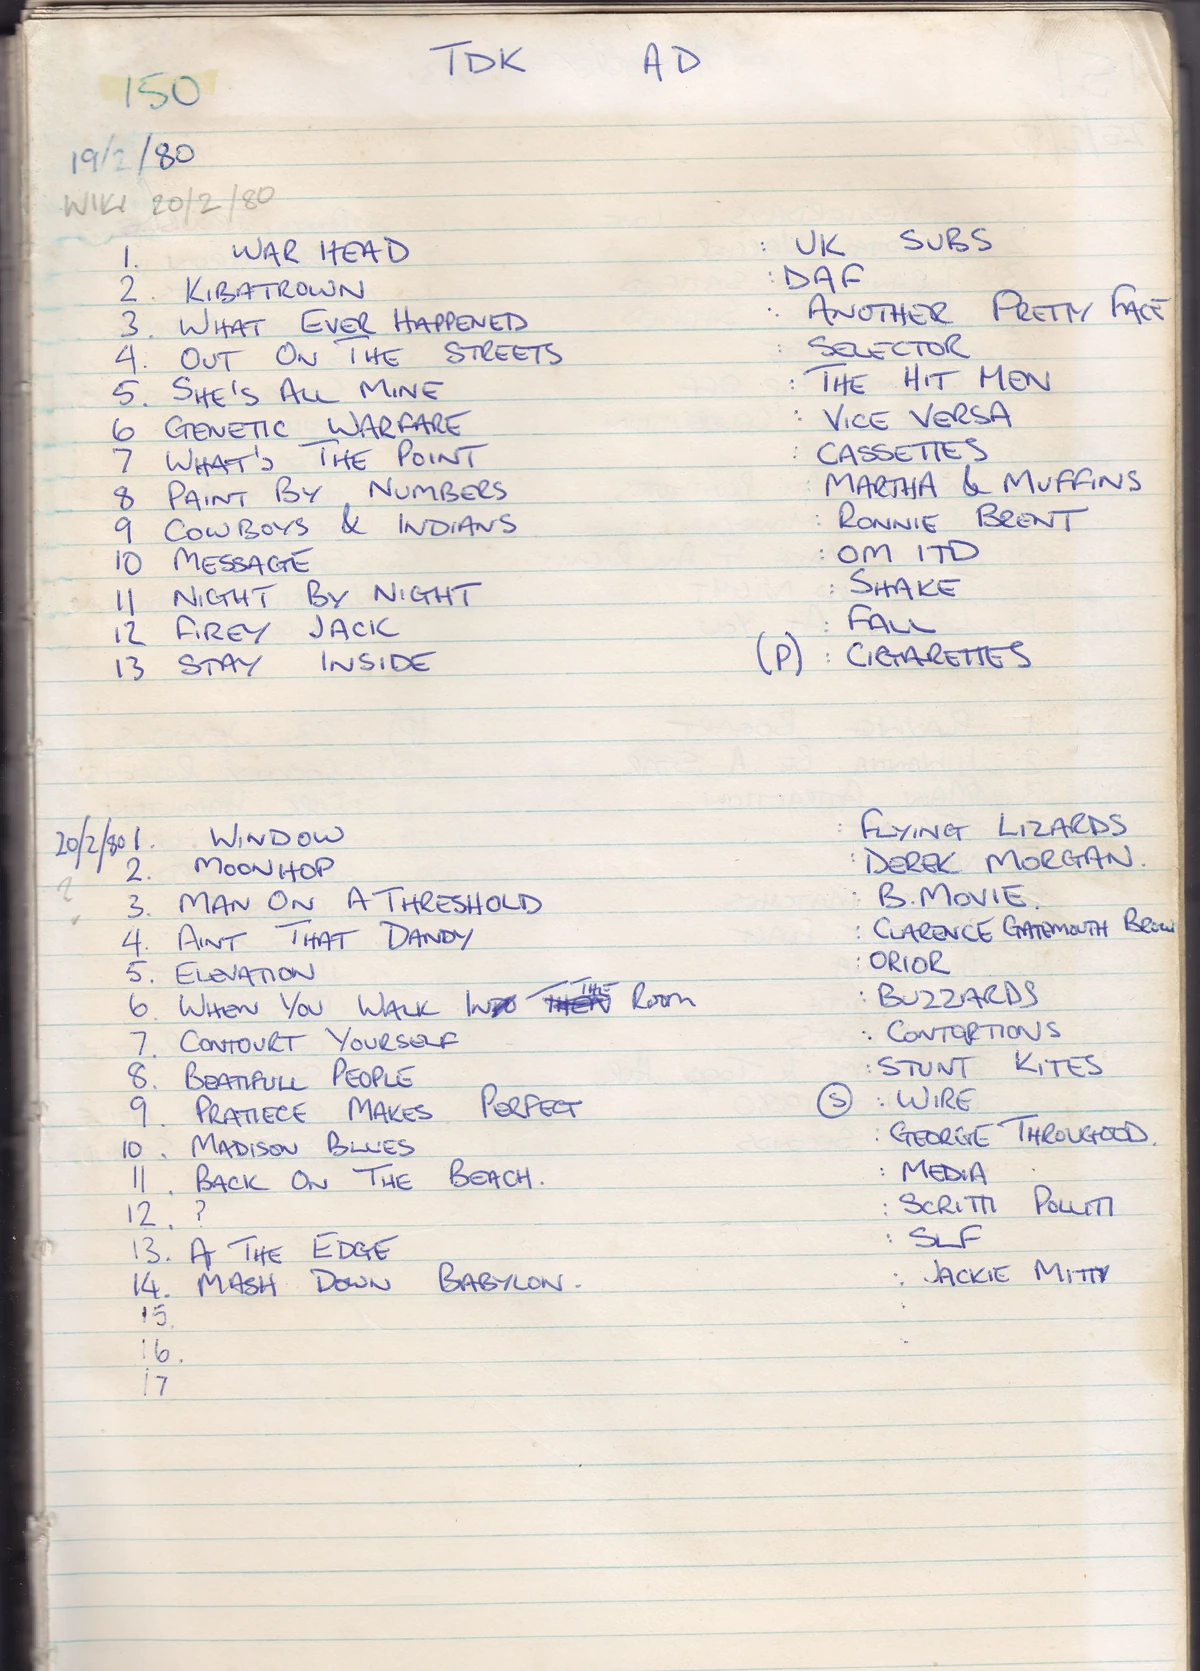 TDK AD
150
19/2/80
WIKI 20/2/80
1. WAR HEAD : UK SUBS
2. KIBATROWN : DAF
3. WHAT EVER HAPPENED : ANOTHER PRETTY FACE
4. OUT ON THE STREETS : SELECTOR
5. SHE'S ALL MINE : THE HIT MEN
6 GENETIC WARFARE : VICE VERSA
7 WHAT'S THE POINT : CASSETTES
8 PAINT BY NUMBERS : MARTHA & MUFFINS
9 COWBOYS & INDIANS : RONNIE BRENT
10 MESSAGE : OM ITD
11 NIGHT BY NIGHT : SHAKE
12 FIREY JACK : FALL
13 STAY INSIDE (P) : CIGARETTES
20/2/80 1. WINDOW : FLYING LIZARDS
2. MOONHOP : DEREK MORGAN.
?
3. MAN ON A THRESHOLD : B.MOVIE.
4. AINT THAT DANDY : CLARENCE GATEMOUTH BROWN
5. ELEVATION : ORIOR
6. WHEN YOU WALK IN THE ROOM : BUZZARDS
7. CONTOURT YOURSELF : CONTORTIONS
8. BEATIFULL PEOPLE : STUNT KITES
9. PRATIECE MAKES PERFECT (S) : WIRE
10. MADISON BLUES : GEORGE THROUGOOD.
11. BACK ON THE BEACH. : MEDIA
12. ? : SCRITTI POLLITI
13. AT THE EDGE : SLF
14. MASH DOWN BABYLON. : JACKIE MITTY
15. :
16. :
17